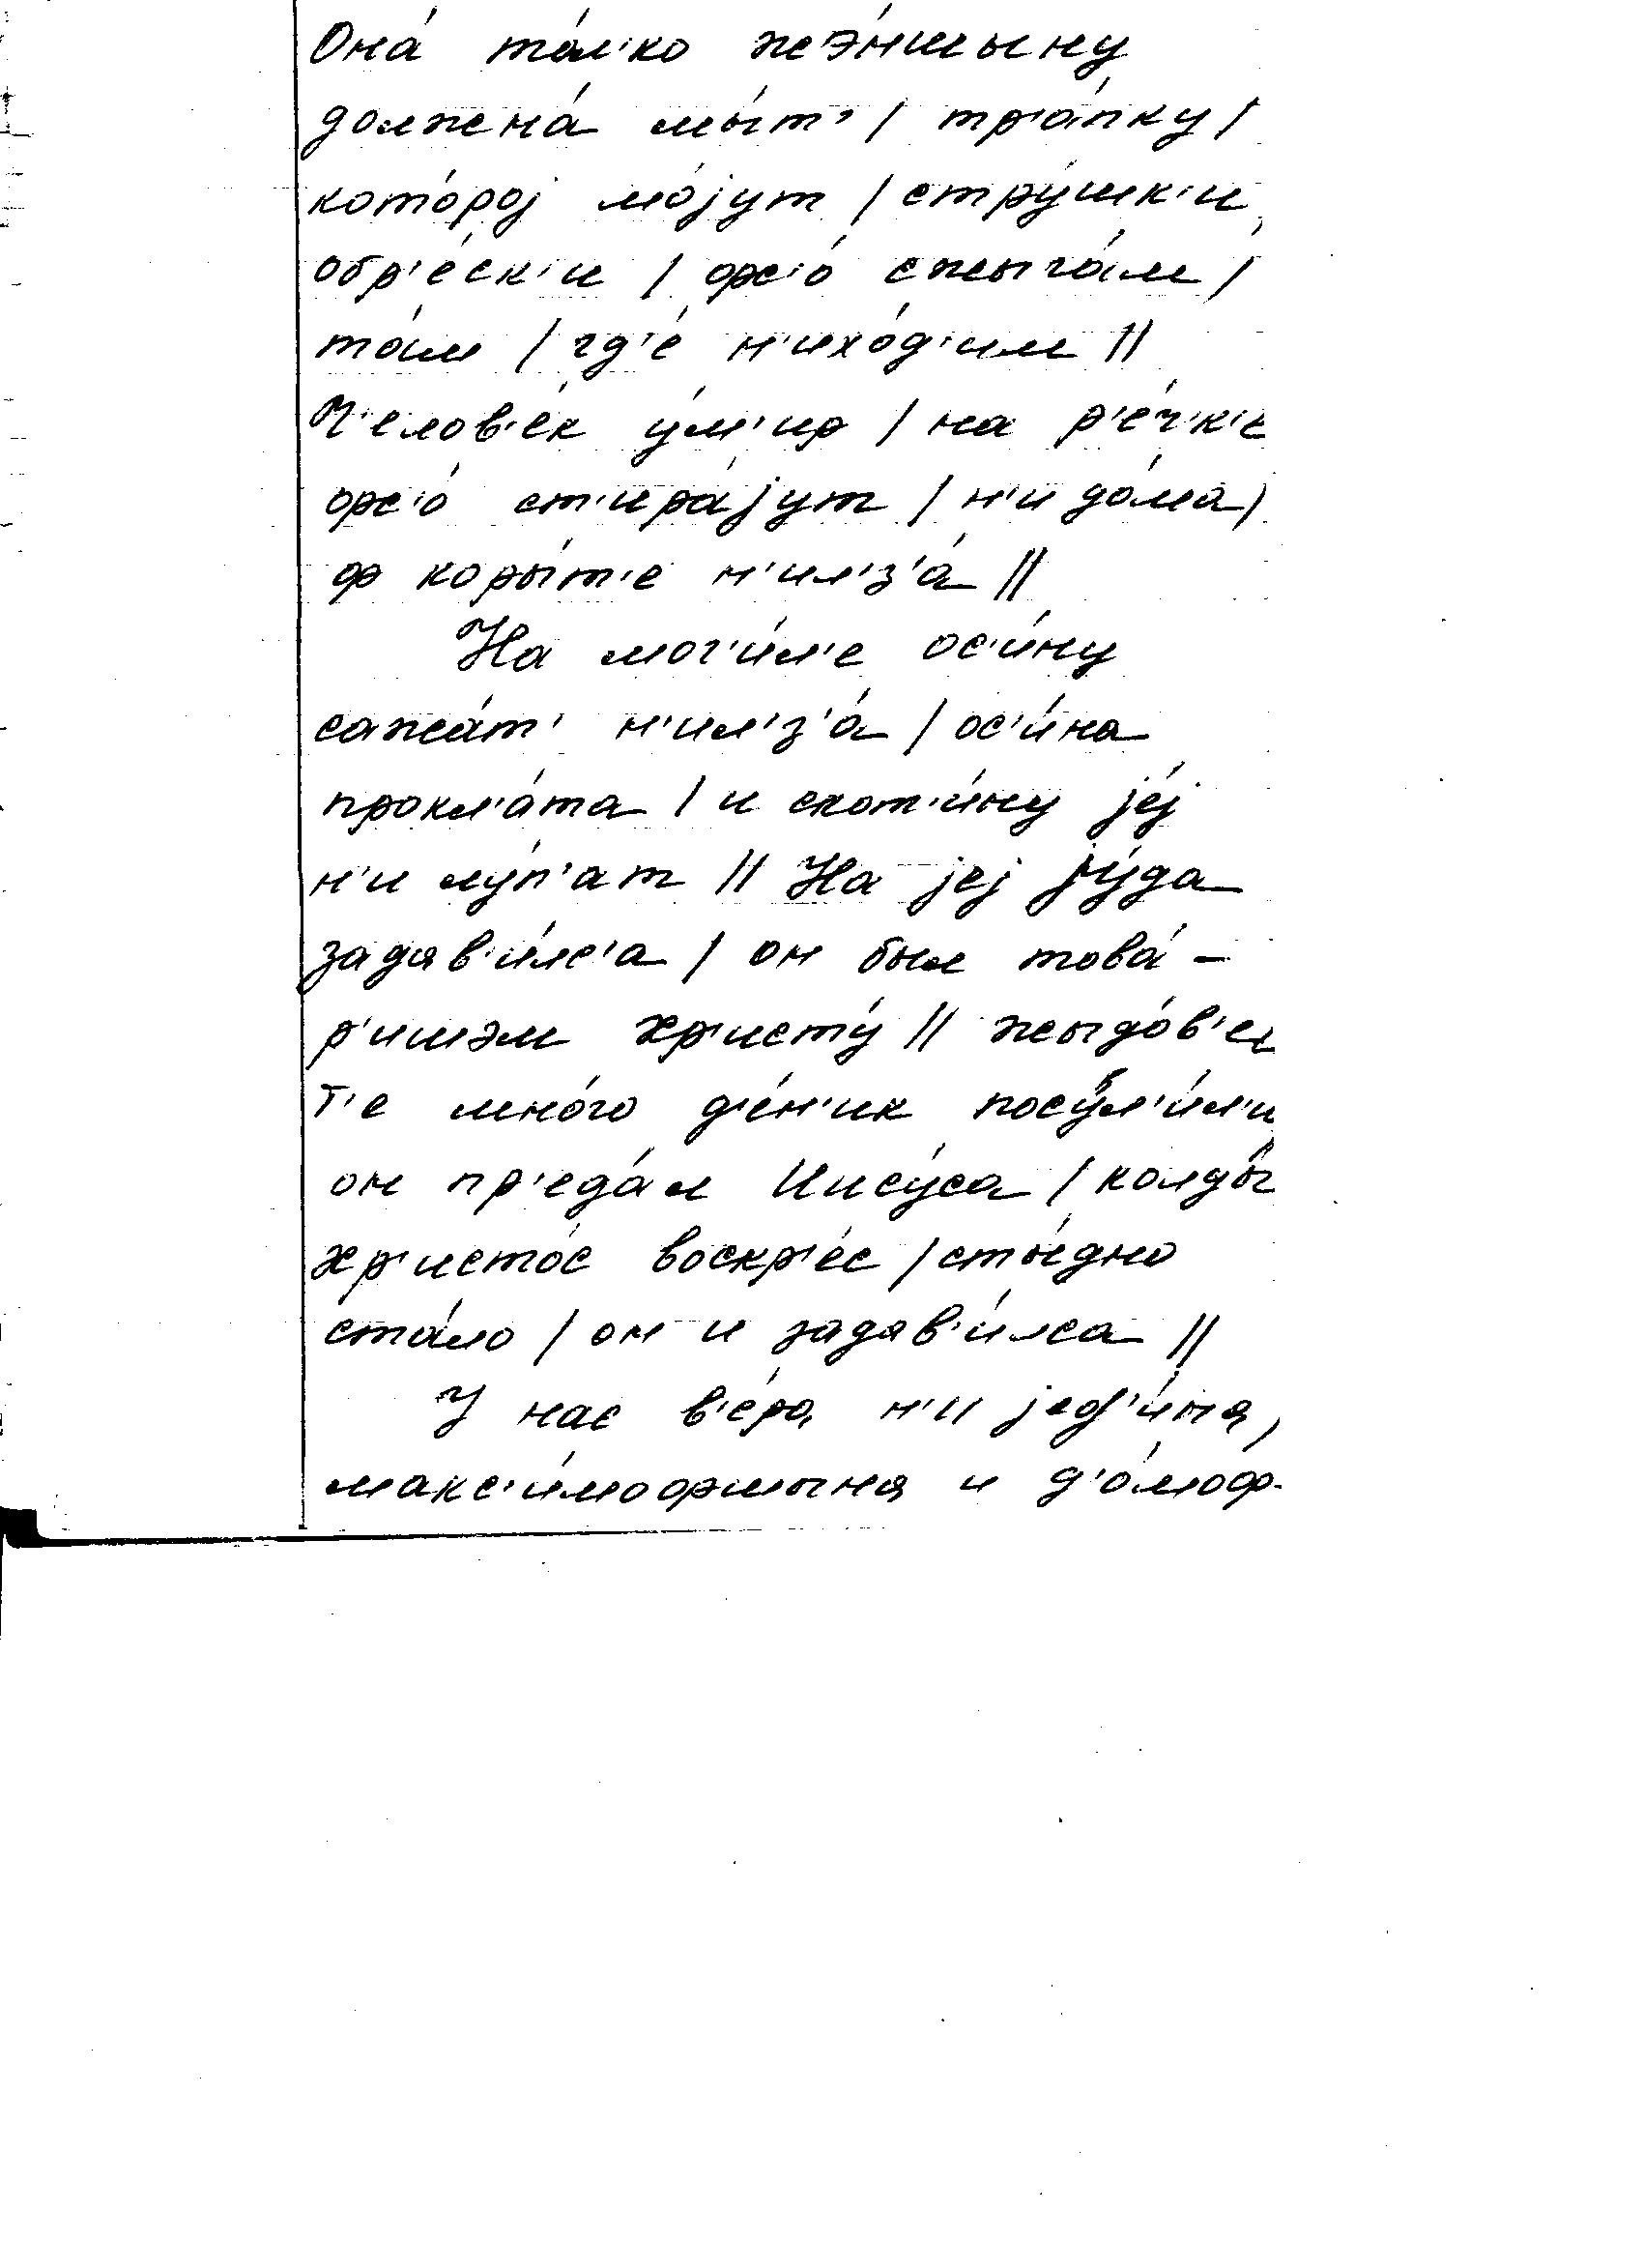 Она́ то́л'ко жэ́ншыну
должена́ мы́т' / тр'а́пку /
кото́рој мо́јут / стру́шк'и,
обр'е́ск'и / фс'о́ сжыга́м /
та́м / гд'е́ н'ихо́д'им //
Ч'елов'е́к у́м'ир / на р'е́ч'к'е
фс'о́ ст'ира́јут / н'и до́ма /
ф коры́т'е н'ил'з'а́ //
На мог'и́л'е ос'и́ну
сажа́т' н'ил'з'а́ / ос'и́на
прокл'а́та / и скот'и́ну је́ј
н'и лу́п'ат // На јеј Іју́да
задав'и́лс'а / он был това́-
р'ишэм Хр'исту́ // жыдо́в'е
т'е мно́го д'е́н'ик посул'и́л'и
он пр'еда́л Иису́са / колды́
Хр'исто́с воскр'е́с / сты́дно
ста́ло / он и задав'и́лса //
У нас в'е́ра н'и јед'и́на,
макс'и́мофшына и д'о́моф-